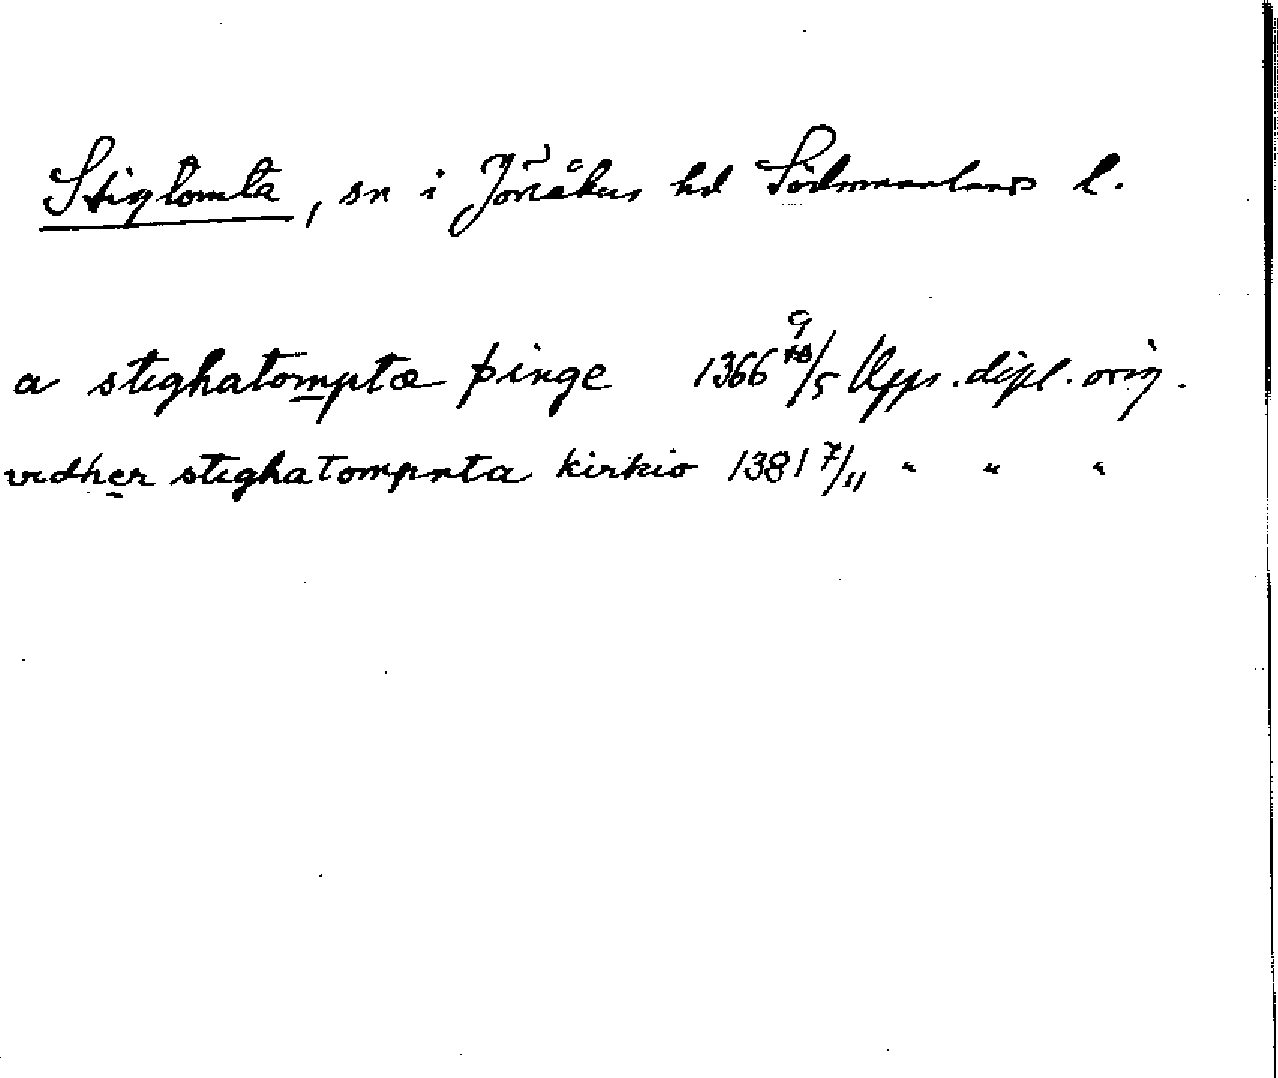 Stigtomta, sn i Jönåkers hd Södermanlands l.
a stighatomptæ þinge 1366 9/5 Upps. dipl. orig.
vidher stighatompnta kirkio 1381 7/11 " " "